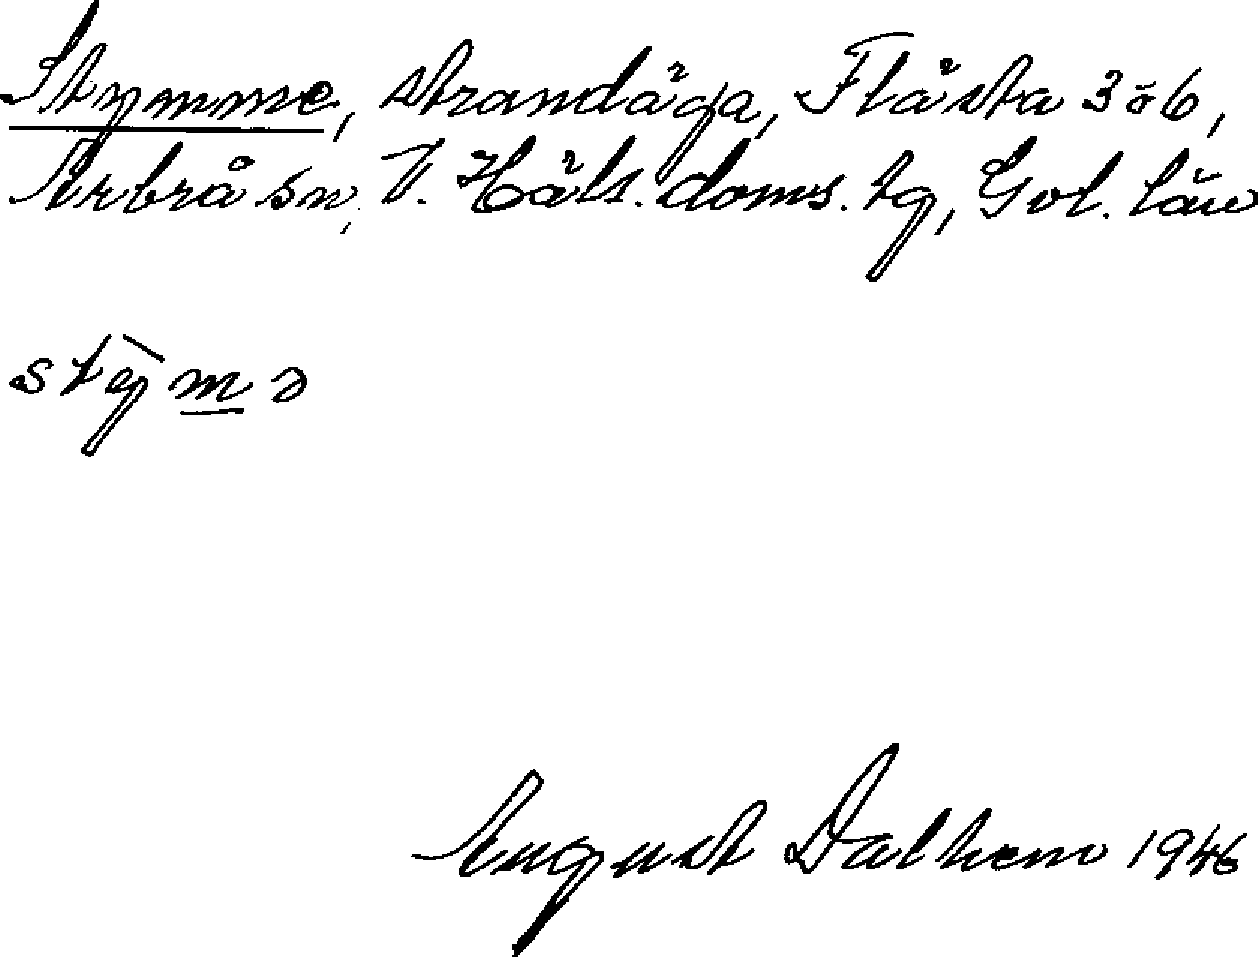 Stymme, strandäga, Flästa 3 o 6,
Arbrå sn, V. Häls. doms. tg, Gvl. län
stỳmə
August Dalhem 1946